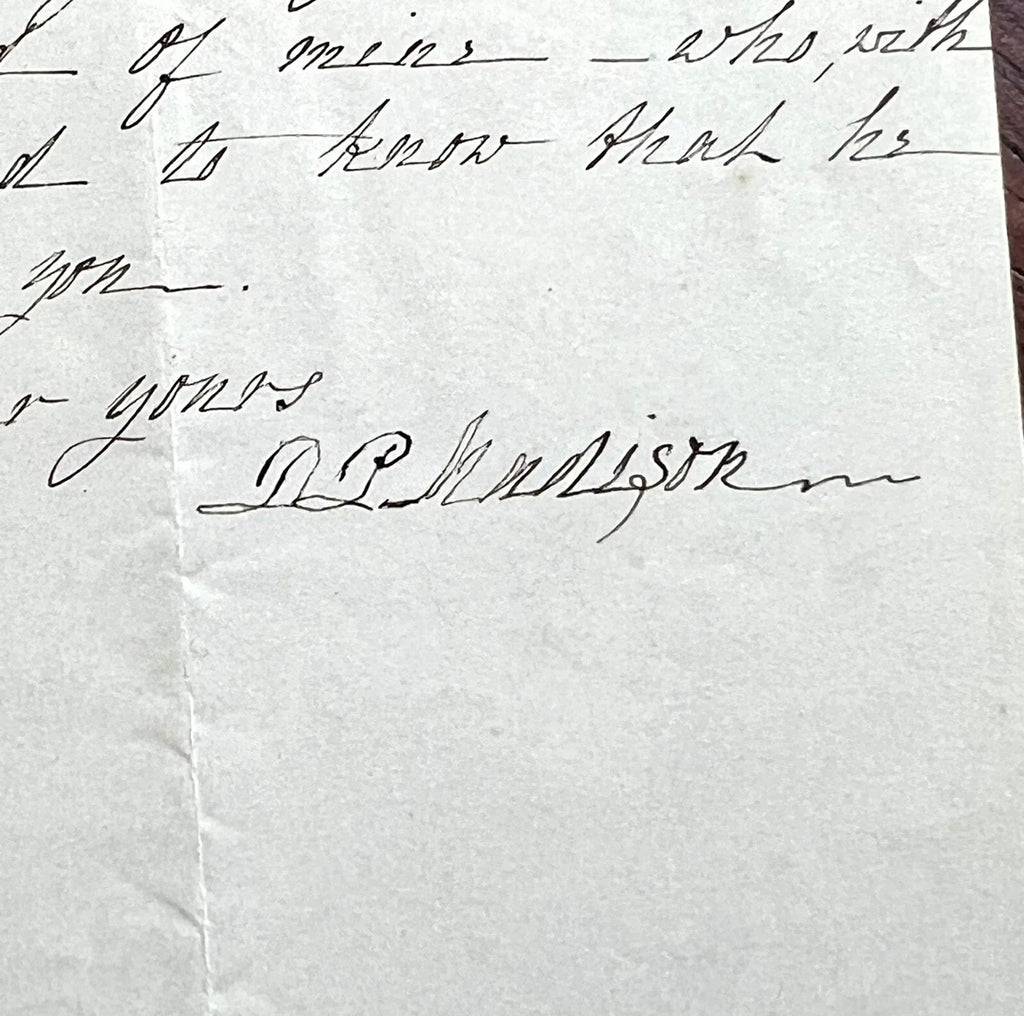 d of mine – who, with
d to know that he
you.
r yours
D P Madison